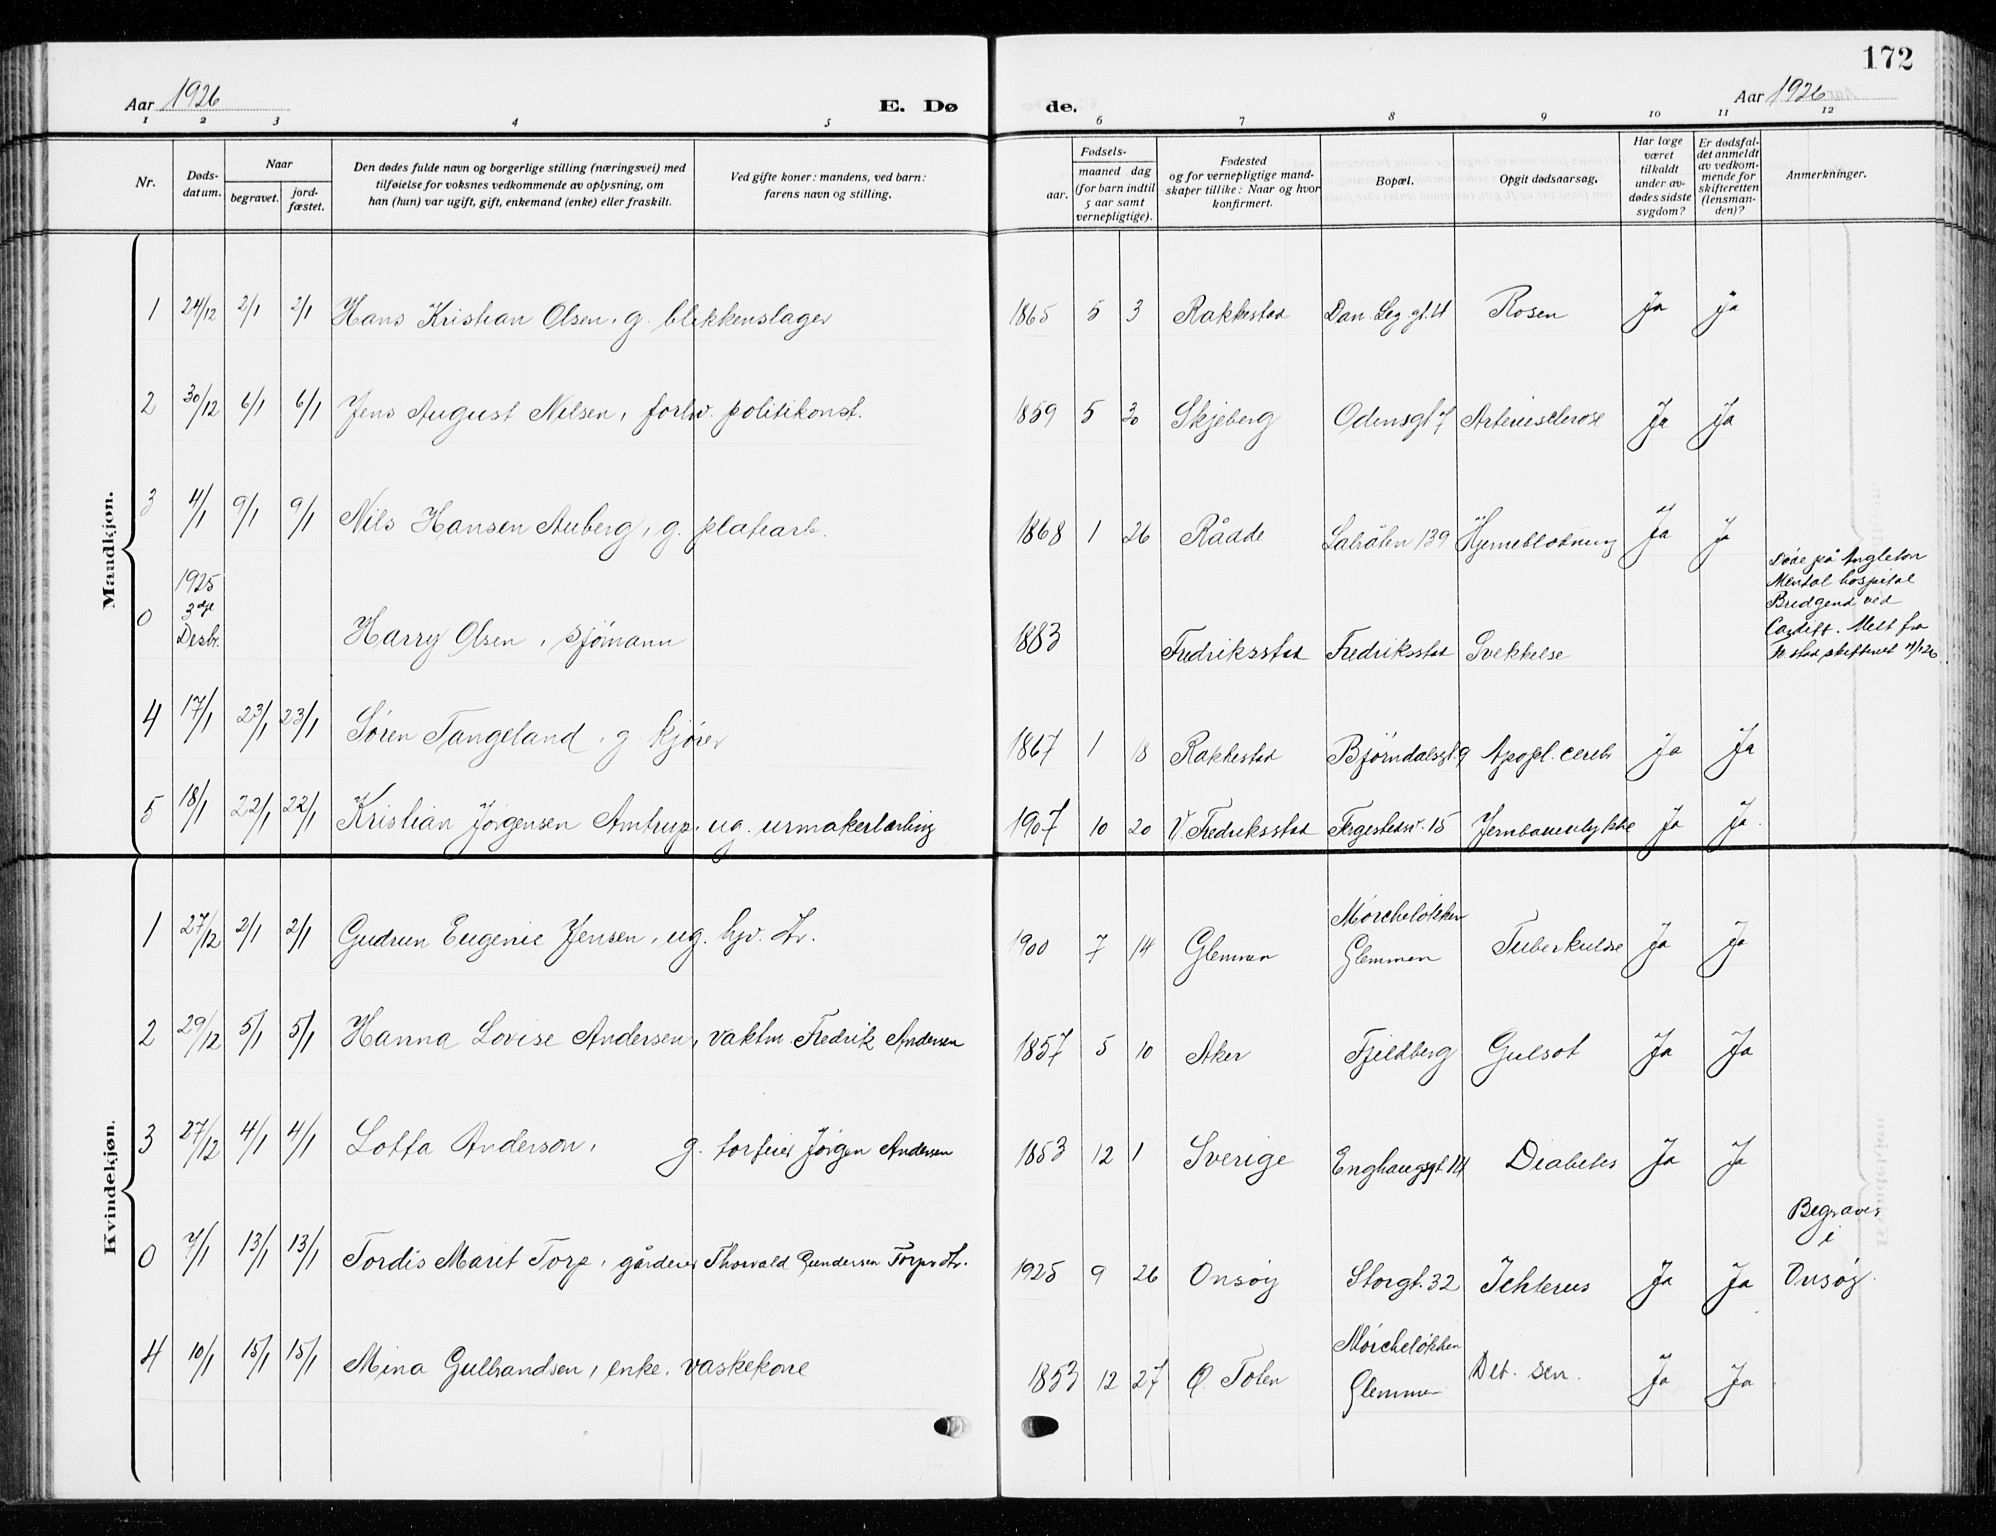 172
Aar 1926
E. Dø
de.
Aar 1926
1 2 3 4 5 6 7 8 9 10 11 12
Nr.
Døds-
datum.
Naar
begravet.
jord-
fæstet.
Den dødes fulde navn og borgerlige stilling (næringsvei) med
tilføielse for voksnes vedkommende av oplysning, om
han (hun) var ugift, gift, enkemand (enke) eller fraskilt.
Ved gifte koner: mandens, ved barn:
farens navn og stilling.
Fødsels-
aar.
maaned dag
(for barn indtil
5 aar samt
vernepligtige).
Fødested
og for vernepligtige mand-
skaper tillike: Naar og hvor
konfirmert.
Bopæl.
Opgit dødsaarsag.
Har læge
været
tilkaldt
under av-
dødes sidste
sygdom?
Er dødsfal-
det anmeldt
av vedkom-
mende for
skifteretten
(lensman-
den)?
Anmerkninger.
Mandkjøn.
1 24/12 2/1 2/1 Hans Kristian Olsen, g. blikkenslager 1865 5 3 Rakkestad Dan. Leg gt. 4 Rosen Ja Ja
2 30/12 6/1 6/1 Jens August Nilsen, forhv. politikonst. 1859 5 30 Skjeberg Odinsgt 7 Arteriesclerose Ja Ja
3 4/1 9/1 9/1 Nils Hansen Auberg, g. platearb. 1868 1 26 Råade 139 Hjerneblødning Ja Ja
0 1925 3dje Desbr. Harry Olsen, sjømann 1883 Fredriksstad Fredriksstad Svekkelse
Døde på Angleton
Mental hospital
Bridgend ved
Cardiff. Melt fra
4 17/1 23/1 23/1 Søren Tangeland, g. kjører 1867 1 18 Rakkestad Bjørndalsgt. 9 Apopl. cerebr Ja Ja
5 18/1 22/1 22/1 Kristian Jørgensen Amtrup, ug. urmakerlærling 1907 10 20 V. Fredriksstad Fergestedsv. 15 Jernbaneulykke Ja Ja
Kvindekjøn.
1 27/12 2/1 2/1 Gudrun Eugenie Jensen, ug. hjv. dtr. 1900 7 14 Glemmen Mørcheløkken Glemmen Tuberkulose Ja Ja
2 29/12 5/1 5/1 Hanna Lovise Andersen, vaktm. Fredrik Andersen 1857 5 10 Aker Fjeldberg Gulsot Ja Ja
3 27/12 4/1 4/1 Lotta Anderson, g. forfeier Jørgen Andersen 1853 12 1 Sverige Enghaugsgt. 14 Diabetes Ja Ja
0 7/1 13/1 13/1 Tordis Marit Torp, gårdeier Thorvald Gundersen Torps dtr. 1925 9 26 Onsøy Storgt. 32 Ichterus Ja Ja
Begraves
i
Onsøy.
4 10/1 15/1 15/1 Mina Gulbrandsen, enke, vaskekone 1853 12 27 Ø. Toten Mørcheløkken Glemmen Deb. sen. Ja Ja